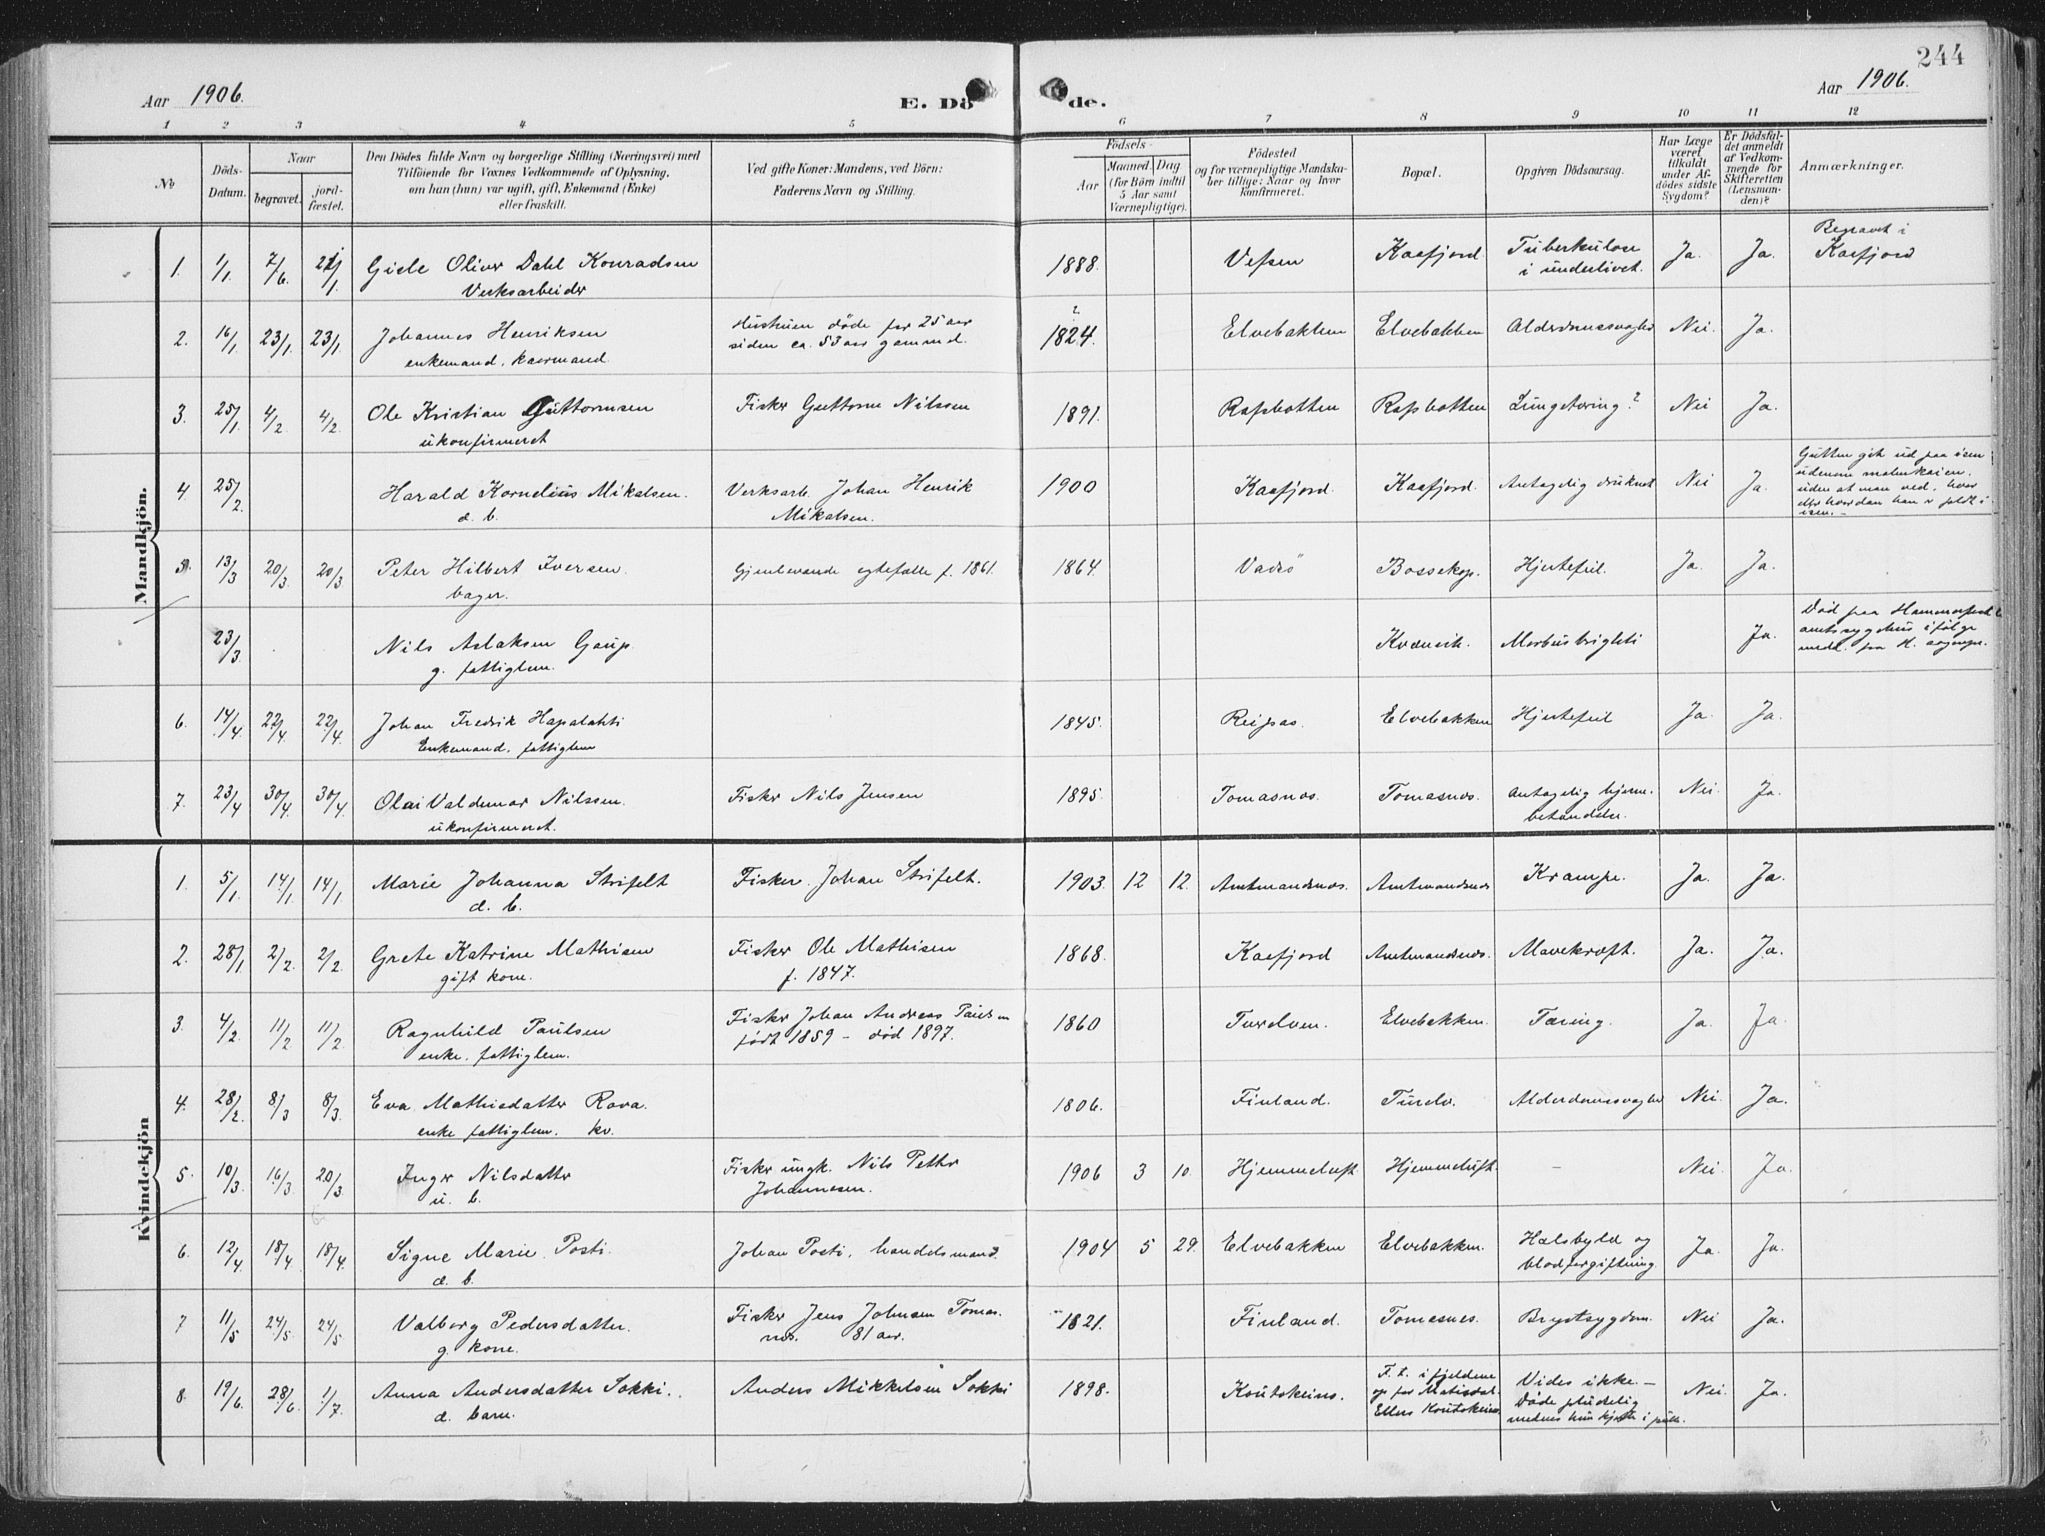 244
Aar 1906.
E. Dö de.
Aar 1906.
1 2 3 4 5 6 7 8 9 10 11 12
No
Döds-
Datum.
Naar
begravet.
jord-
fæstet.
Den Dödes fulde Navn og borgerlige Stilling (Næringsvei) med
Tilföiende for Voxnes Vedkommende af Oplysning,
om han (hun) var ugift, gift, Enkemand (Enke)
eller fraskilt.
Ved gifte Koner: Mandens, ved Börn:
Faderens Navn og Stilling.
Födsels-
Aar
Maaned. Dag
(for Börn indtil
5 Aar samt
Værnepligtige).
Födested
og for værnepligtige Mandska-
ber tillige: Naar og hvor
konfirmeret.
Bopæl.
Opgiven Dödsaarsag.
Har Læge
været
tilkaldt
under Af-
dödes sidste
Sygdom?
Er Dödsfal-
det anmeldt
af Vedkom-
mende for
Skifteretten
(Lensman-
den)?
Anmærkninger.
Mandkjön.
1. 1/1. 2/6. 21/1. Gisle Oliver Dahl Konradsen 1888. Vefsen Kaafjord Tuberkulose Ja. Ja. Begravet i
Verksarbeider i underlivet. Kaafjord
2. 16/1. 23/1. 23/1. Johannes Henriksen Hustruen døde for 25 aar 1824. ? Elvebakken Elvebakken Alderdomssvaghed Nei. Ja.
enkemand, kaarmand siden ca. 53 aar gammel.
3. 25/1. 4/2 4/2. Ole Kristian Guttormsen Fisker Guttorm Nilssen 1891. Rafsbotten Rafsbotten Lungetæring? Nei Ja.
ukonfirmeret
4. 25/2. Harald Kornelius Mikalsen. Verksarb. Johan Henrik 1900 Kaafjord. Kaafjord. Antagelig druknet Nei Ja.
d. b. Mikalsen.
Gutten gik ud paa isen
udenom malmkaien.
uden at man ved, hvor
eller hvordan han er faldt i
isen.-
5. 13/3 20/3. 20/3 Peter Hilbert Iversen. Gjenlevende egtefælle f. 1861. 1864. Vadsö Bossekop. Hjertefeil. Ja. Ja.
bager.
23/3. Nils Aslaksen Gaup. Kvænvik. Morbus brigleti Ja.
g. fattiglem.
Död paa Hammerfest
amtssygehus ifølge
medd. fra H. sognepr.
6. 14/4. 22/4 22/4. Johan Fredrik Hapalahti 1845. Reipas. Elvebakken Hjertefeil Ja. Ja.
Enkemand, fattiglem
7. 23/4 30/4 30/4. Olai Valdemar Nilssen. Fisker Nils Jensen 1895. Tomasnæs. Tomasnæs. Antagelig hjerne- Nei. Ja.
ukonfirmeret. betændelse.
Kvindekjön
1. 5/1. 14/1 14/1 Marie Johanna Strifelt Fisker Johan Strifelt. 1903. 12 12. Amtmandsnæs. Amtmandsnæs Krampe. Ja. Ja.
d. b.
2. 28/1 2/2. 2/2. Grete Katrine Mathisen Fisker Ole Mathisen 1868. Kaafjord Amtmandsnæs. Mavekræft. Ja. Ja.
gift kone. f. 1847.
3. 4/2. 11/2 11/2. Ragnhild Paulsen Fisker Johan Andreas Paulsen 1860 Turelven. Elvebakken. Tæring. Ja. Ja.
enke. fattiglem. født 1859 – død 1897.
4. 28/2. 8/3 8/3. Eva Mathisdatter Rova. 1806. Finland. Turelv. Alderdomssvaghed Nei. Ja.
enke fattiglem. kv.
5. 10/3. 16/3 20/3. Inger Nilsdatter Fisker ungk. Nils Petter 1906 3 10. Hjemmeluft Hjemmeluft. – Nei. Ja.
u. b. Johannesen.
6. 12/4 18/4 18/4. Signe Marie Posti. Johan Posti, handelsmand. 1904 5 29. Elvebakken Elvebakken. Halsbyld og Ja. Ja.
d. b. blodforgiftning.
7 11/5 24/5. 24/5 Valborg Pedersdatter. Fisker Jens Johnsen Tomas- 1821. Finland. Tomasnæs. Brystsygdom. Nei Ja.
g. kone. næs. 81 aar.
8. 19/6. 28/6. 1/7. Anna Andersdatter Sokki. Anders Mikkelsen Sokki 1898. Koutokeino. Nei. Ja.
d. barn.
F. t. i fjeldene
op for Matisdal.
Ellers Koutokeino
Vides ikke –
Døde pludselig
medens hun kjørte i pulk.